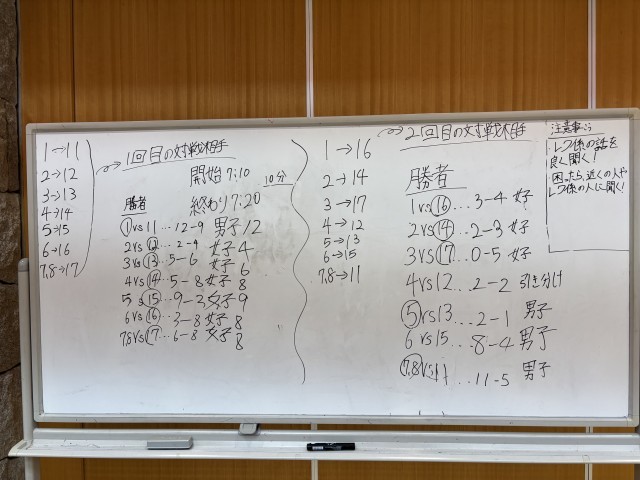 1→11
2→12
3→13
4→14
5→15
6→16
7,8→17
→1回目の対戦相手
開始7:10
10分
勝者 終わり7:20
①vs11…12-9 男子12
2vs⑫…2-4 女子4
3vs⑬…5-6 女子6
4vs⑭…5-8 女子8
5vs⑮…9-3 女子9
6vs⑯…3-8 女子8
7,8vs⑰…6-8 女子8
→2回目の対戦相手
1→16
2→14
3→17
4→12
5→13
6→15
7,8→11
勝者
1vs⑯…3-4 女子
2vs⑭…2-3 女子
3vs⑰…0-5 女子
4vs12…2-2 引き分け
⑤vs13…2-1 男子
6vs15…8-4 男子
7,8vs11…11-5 男子
注意事
レク係の話を
良く聞く!
困ったら、近くの人や
レク係の人に聞く!